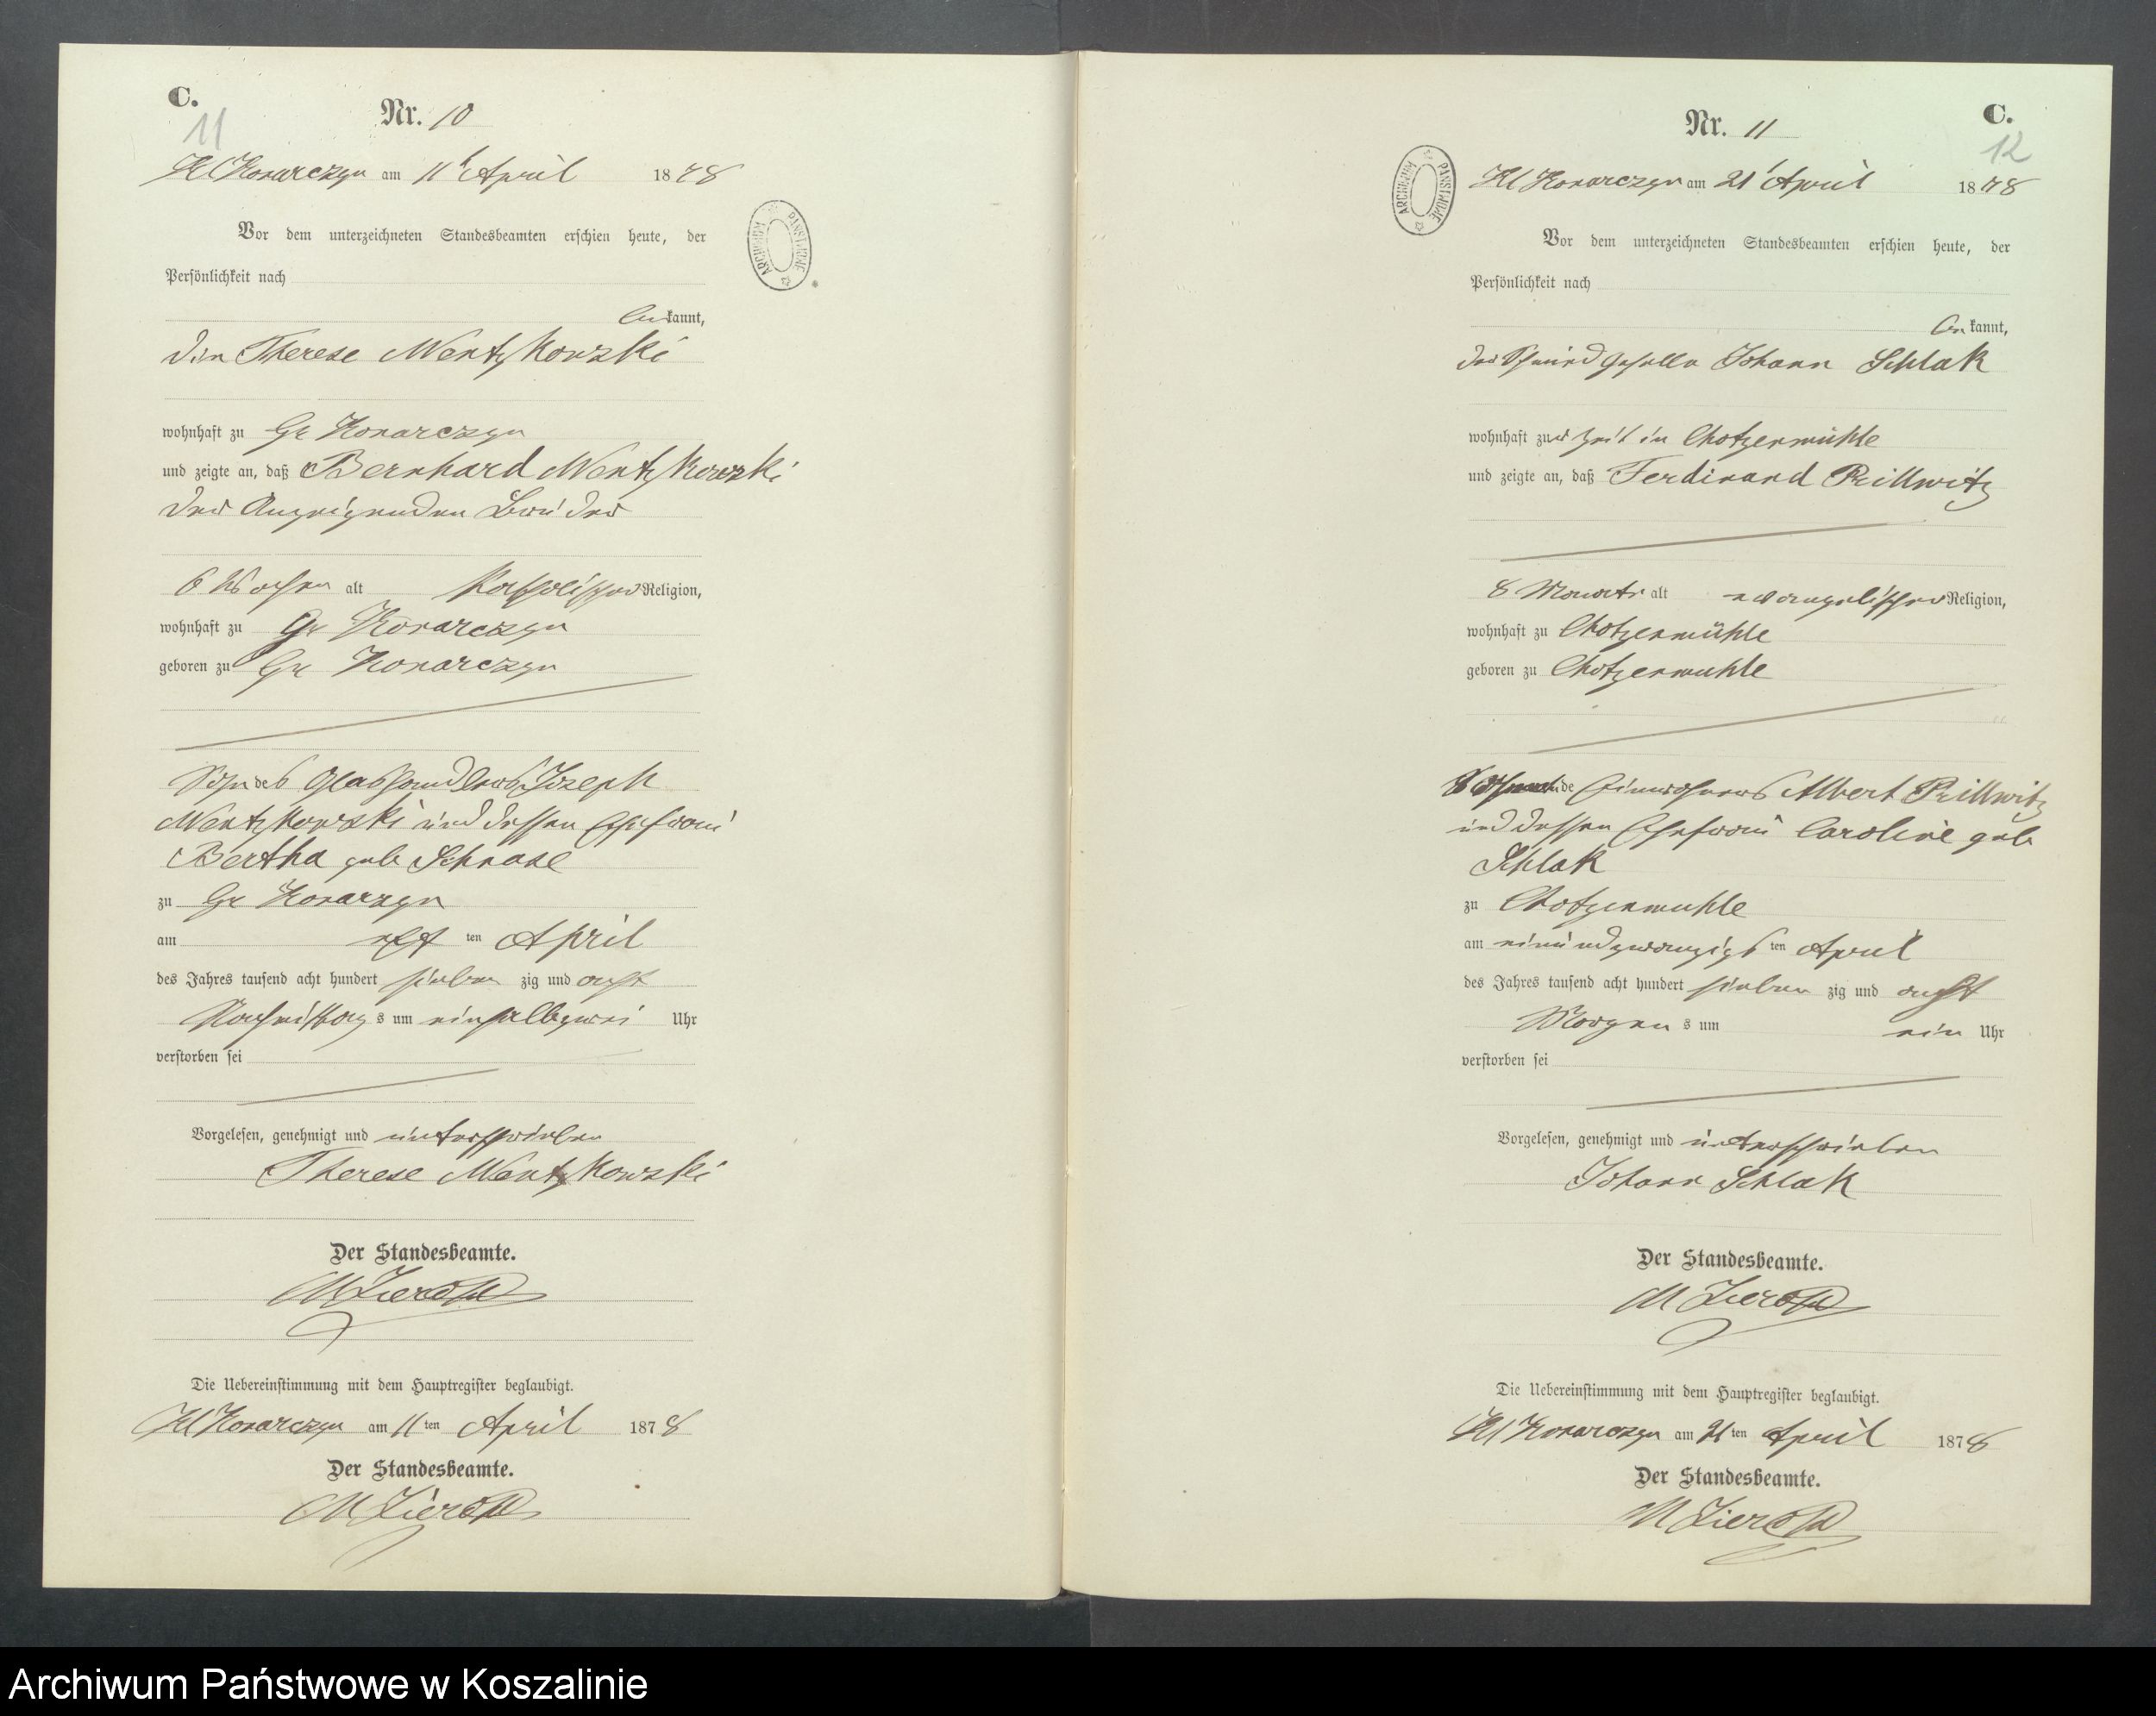 C.
11
Nr. 10
Kl Konarczyn am 11t April 1878
Vor dem unterzeichneten Standesbeamten erschien heute, der
Persönlichkeit nach
bekannt,
die Therese Mentzkowski
wohnhaft zu Gr Konarczyn
und zeigte an, daß Bernhard Mentzkowski
der Anzeigenden Bruder
6 Wochen alt katholischer Religion,
wohnhaft zu Gr Konarczyn
geboren zu Gr Konarczyn
Sohn des Glashändlers Joseph
Mentzkowski und dessen Ehefrau
Bertha geb Schnase
zu Gr Konarzyn
am elf ten April
des Jahres tausend acht hundert sieben zig und acht
Nachmittag s um einhalbzwei Uhr
verstorben sei
Vorgelesen, genehmigt und unterschrieben
Therese Mentzkowski
Der Standesbeamte.
Die Uebereinstimmung mit dem Hauptregister beglaubigt.
Kl Konarczyn am 11 ten April 1878
Der Standesbeamte.
ARCHIWUM PAŃSTWOWE
C.
12
Nr. 11
Kl Konarczyn am 21t April 1878
Vor dem unterzeichneten Standesbeamten erschien heute, der
Persönlichkeit nach
bekannt,
der Schmied Geselle Johann Schlak
wohnhaft zur Zeit in Chotzenmühle
und zeigte an, daß Ferdinand Prillwitz
8 Monate alt evangelischer Religion,
wohnhaft zu Chotzenmühle
geboren zu Chotzenmuhle
de Einwohners Albert Prillwitz
und dessen Ehefrau Caroline geb
Schlak
zu Chotzenmuhle
am einundzwanzigs ten April
des Jahres tausend acht hundert sieben zig und acht
Morgen s um ein Uhr
verstorben sei
Vorgelesen, genehmigt und unterschrieben
Johann Schlak
Der Standesbeamte.
Die Uebereinstimmung mit dem Hauptregister beglaubigt.
Kl Konarczyn am 21 ten April 1878
Der Standesbeamte.
ARCHIWUM PAŃSTWOWE
Archiwum Państwowe w Koszalinie